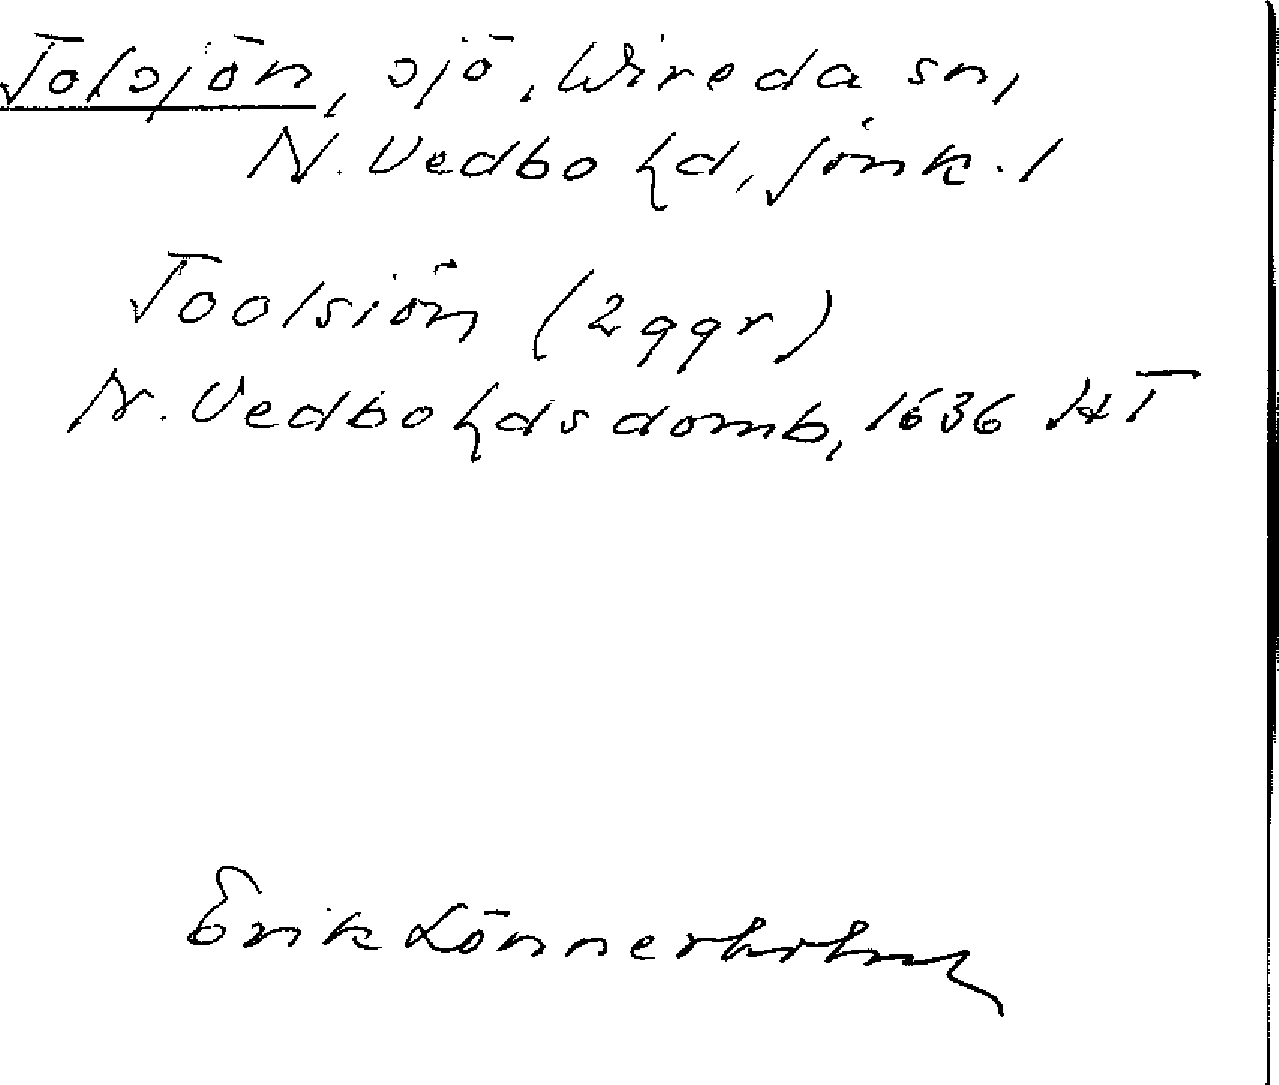 Tolsjön, sjö, Wireda sn,
N. Vedbo hd, Jönk. l
Toolsiön (2 ggr)
N. Vedbo hds domb, 1636 HT
Erik Lönnerholm